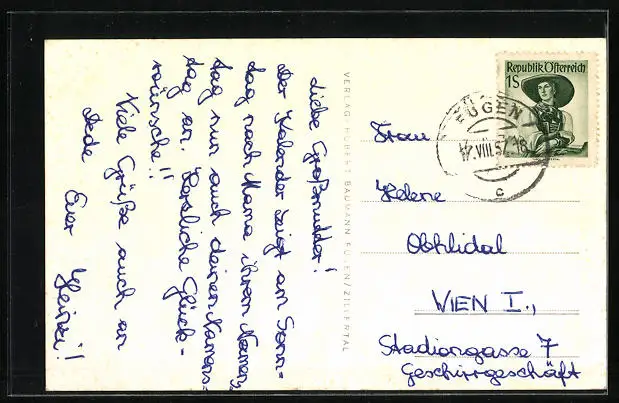 Liebe Großmutter!
Der Kalender zeigt am Sonn-
tag nach Mama ihren Namens
tag nun auch deinen Namens-
tag an. Herzliche Glück-
wünsche!!
Viele Grüße auch an
Dede Euer Heinzi!
VERLAG HUBERT BAUMANN FÜGEN/ZILLERTAL
Republik Österreich
1S
FÜGEN
17.VIII.57.18
c
Frau
Helene
Obhlidal
WIEN I.,
Stadiongasse 7
Geschirrgeschäft